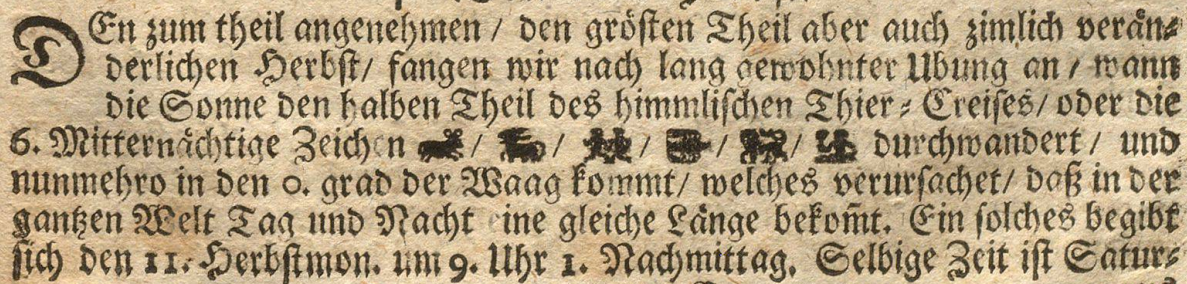 DEn zum theil angenehmen / den grösten Theil aber auch zimlich verän⸗
derlichen Herbst/ fangen wir nach lang gewohnter Ubung an / wann
die Sonne den halben Theil des himmlischen Thier⸗Creises/ oder die
6. Mitternächtige Zeichen ♈/ ♉/ ♊/ ♋/ ♌/ ♍ durchwandert / und
nunmehro in den 0. grad der Waag kommt/ welches verursachet/ daß in der
gantzen Welt Tag und Nacht eine gleiche Länge bekom̄t. Ein solches begibt
sich den 11. Herbstmon. um 9. Uhr 1. Nachmittag. Selbige Zeit ist Satur⸗